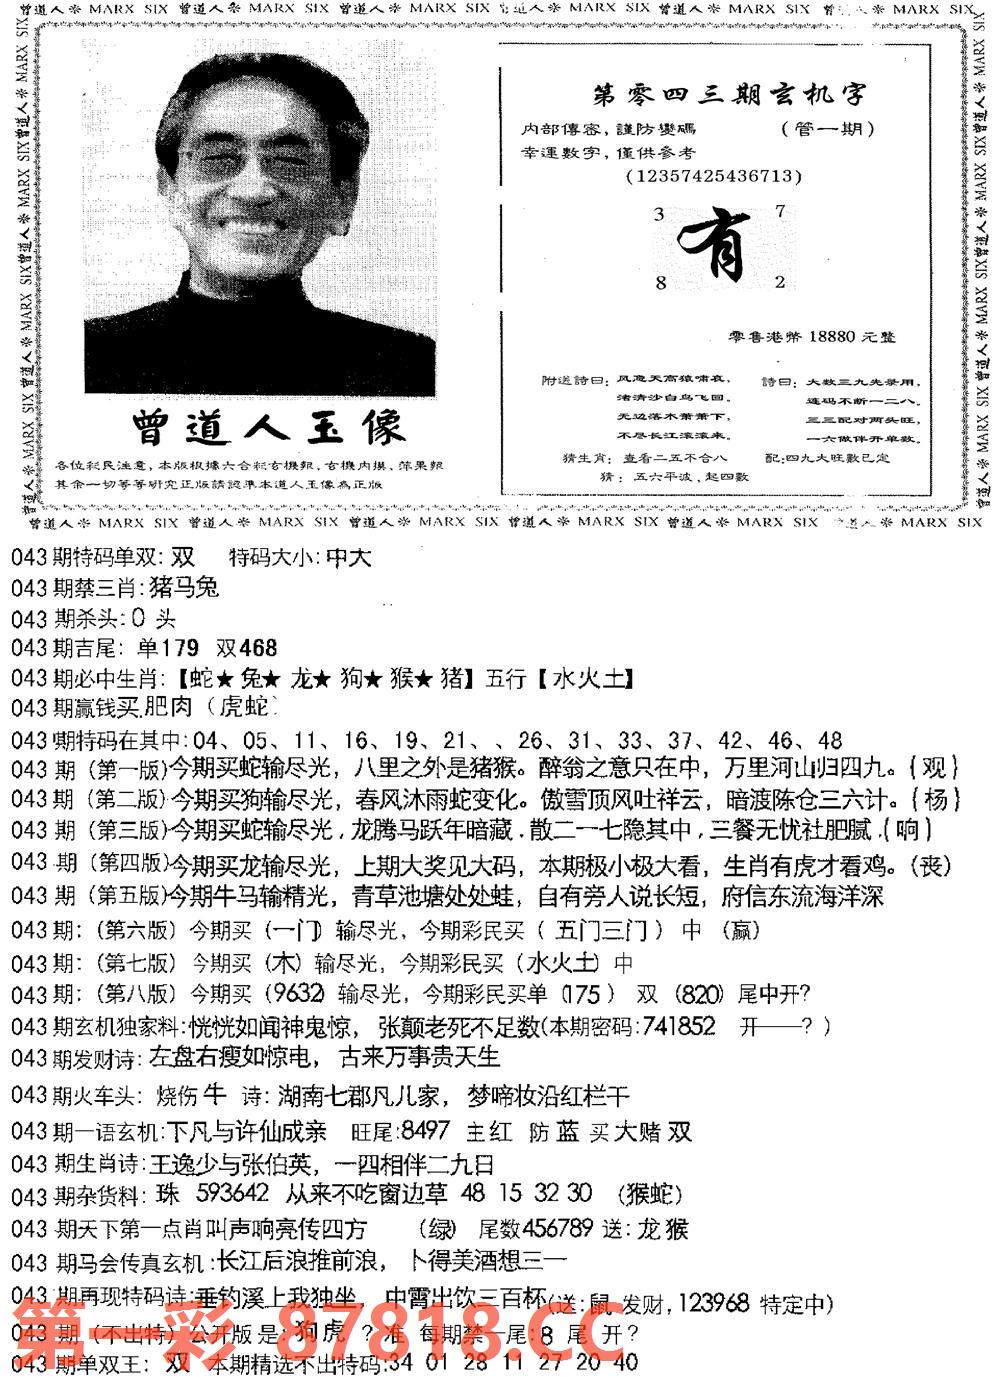 曾道人❊ MARX SIX 曾道人❊ MARX SIX 曾道人❊ MARX SIX 曾道人❊ MARX SIX 曾道人❊ MARX SIX 曾道人❊ MARX SIX
第零四三期玄机字
内部傳密，謹防變碼 （管一期）
幸運數字，僅供參考
(12357425436713)
3 7
有
8 2
零售港幣 18880 元整
附送詩曰：风急天高猿啸哀，
渚清沙白鸟飞回。
无边落木萧萧下，
不尽长江滚滚来。
詩曰：大数三九先录用，
连码不断一二八。
三三配对两头旺，
一六做伴开单数。
猜生肖：查看二五不合八 配:四九大旺數已定
猜：五六平波，起四數
曾道人玉像
各位彩民注意，本版根據六合彩玄機報，玄機内摸，蘋果報
其余一切等等研究正版請認準本道人玉像為正版
曾道人❊ MARX SIX 曾道人❊ MARX SIX 曾道人❊ MARX SIX 曾道人❊ MARX SIX 曾道人❊ MARX SIX 曾道人❊ MARX SIX
043 期特码单双: 双 特码大小: 中大
043 期禁三肖: 猪马兔
043 期杀头: 0 头
043 期吉尾: 单179 双468
043 期必中生肖:【蛇★兔★龙★狗★猴★猪】五行【水火土】
043 期赢钱买.肥肉（虎蛇）
043 期特码在其中: 04、05、11、16、19、21、、26、31、33、37、42、46、48
043 期（第一版)今期买蛇输尽光，八里之外是猪猴。醉翁之意只在中，万里河山归四九。{观}
043 期（第二版)今期买狗输尽光，春风沐雨蛇变化。傲雪顶风吐祥云，暗渡陈仓三六计。{杨}
043 期（第三版)今期买蛇输尽光，龙腾马跃年暗藏．散二一七隐其中，三餐无忧社肥腻．{响}
043 期（第四版)今期买龙输尽光，上期大奖见大码，本期极小极大看，生肖有虎才看鸡。(丧)
043 期（第五版)今期牛马输精光，青草池塘处处蛙，自有旁人说长短，府信东流海洋深
043 期:（第六版）今期买（一门）输尽光，今期彩民买（五门三门）中（赢）
043 期:（第七版）今期买（木）输尽光，今期彩民买（水火土）中
043 期:（第八版）今期买（9632）输尽光，今期彩民买单（175） 双（820）尾中开?
043 期玄机独家料: 恍恍如闻神鬼惊， 张颠老死不足数(本期密码: 741852 开——？)
043 期发财诗: 左盘右瘦如惊电， 古来万事贵天生
043 期火车头: 烧伤牛 诗: 湖南七郡凡儿家， 梦啼妆沿红栏干
043 期一语玄机: 下凡与许仙成亲 旺尾: 8497 主红 防蓝 买大赌双
043 期生肖诗: 王逸少与张伯英，一四相伴二九日
043 期杂货料: 珠 593642 从来不吃窗边草 48 15 32 30 （猴蛇）
043 期天下第一点肖叫声响亮传四方 （绿） 尾数456789 送: 龙猴
043 期马会传真玄机: 长江后浪推前浪， 卜得美酒想三一
043 期再现特码诗: 垂钓溪上我独坐， 中霄出饮三百杯(送: 鼠 发财, 123968 特定中)
043 期（不出特）公开版 是: 狗虎 ？准 每期禁一尾: 8 尾 开？
043 期单双王: 双 本期精选不出特码: 34 01 28 11 27 20 40
第一彩 87818.CC